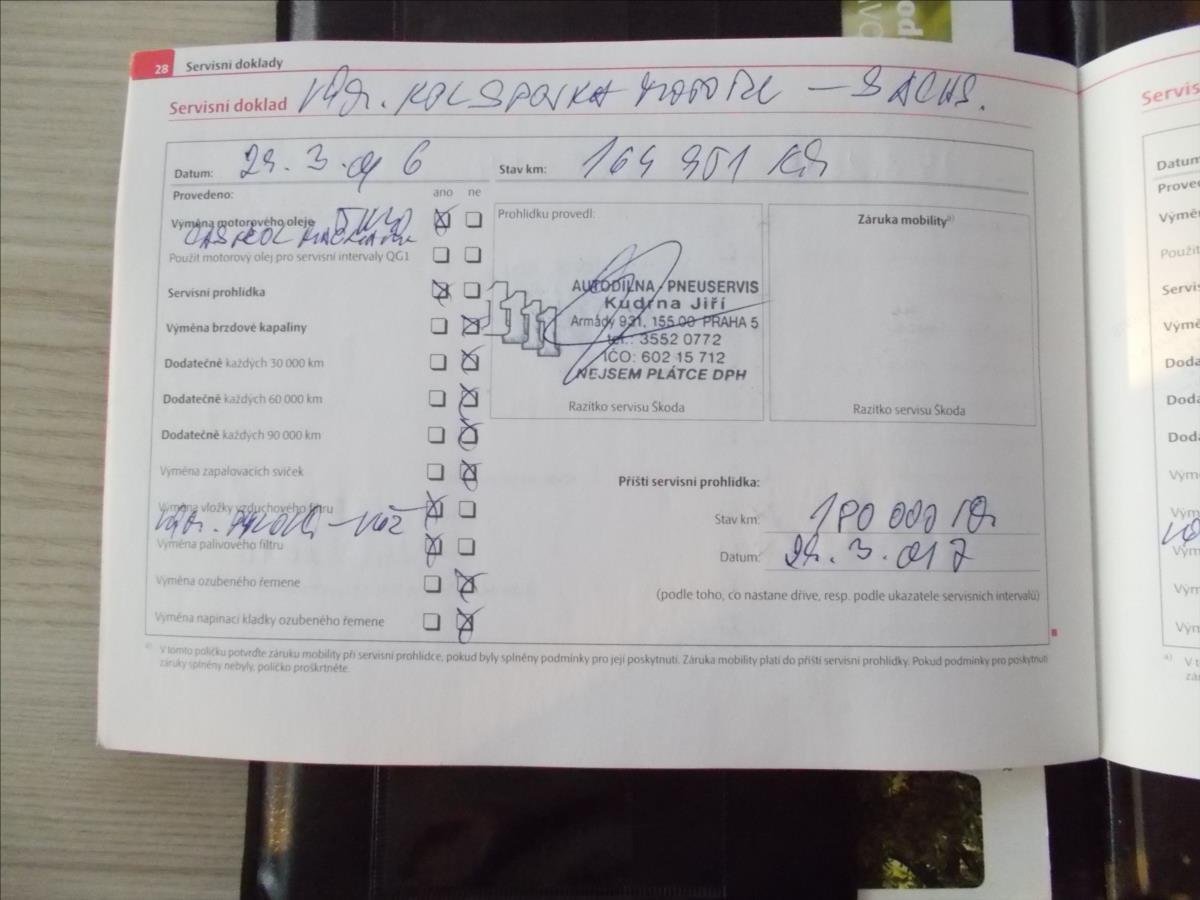 28 Servisní doklady
Servisní doklad Vým. MOTORU — SACHS.
Datum: 3. Stav km: 164 901 km
Provedeno: ano ne
Výměna motorového oleje
CASTROL MAGNATEC
Použit motorový olej pro servisní intervaly QG1
Servisní prohlídka
Výměna brzdové kapaliny
Dodatečně každých 30 000 km
Dodatečně každých 60 000 km
Dodatečně každých 90 000 km
Výměna zapalovacích svíček
Výměna vložky vzduchového filtru
Výměna palivového filtru
Výměna ozubeného řemene
Výměna napínací kladky ozubeného řemene
Prohlídku provedl:
AUTODÍLNA / PNEUSERVIS
Kudrna Jiří
Armády 931, 155 00 PRAHA 5
tel.: 3552 0772
IČO: 602 15 712
NEJSEM PLÁTCE DPH
Razítko servisu Škoda
Záruka mobility a)
Razítko servisu Škoda
Příští servisní prohlídka:
Stav km: 180 000 km
Datum: 3. 017
(podle toho, co nastane dříve, resp. podle ukazatele servisních intervalů)
a) V tomto políčku potvrďte záruku mobility při servisní prohlídce, pokud byly splněny podmínky pro její poskytnutí. Záruka mobility platí do příští servisní prohlídky. Pokud podmínky pro poskytnutí
záruky splněny nebyly, políčko proškrtněte.
Servis
Datum
Prove
Výmě
Použit
Servis
Výmě
Doda
Doda
Doda
Vým
Vým
Vým
Vým
Vým
a) V t
zá